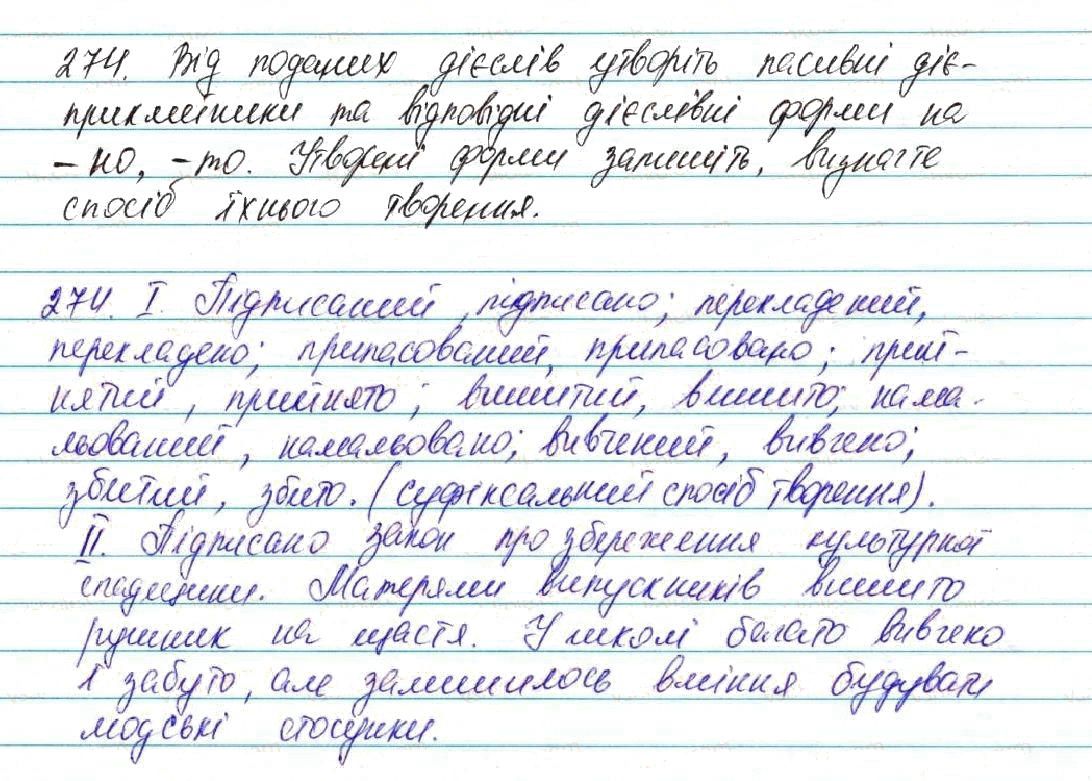 274. Від поданих дієслів утворіть пасивні діє-
прикметники та відповідні дієслівні форми на
-но, -то. Утворені форми запишіть, визначте
спосіб їхнього творення.
274. I. Підписаний, підписано; перекладений,
перекладено; припасований, припасовано; прий-
нятий, прийнято; вишитий, вишито; нама-
льований, намальовано; вивчений, вивчено;
збитий, збито. (суфіксальний спосіб творення).
II. Підписано закон про збереження культурної
спадщини. Матерями випускників вишито
рушник на щастя. У школі багато вивчено
і забуто, але залишилось вміння будувати
людські стосунки.